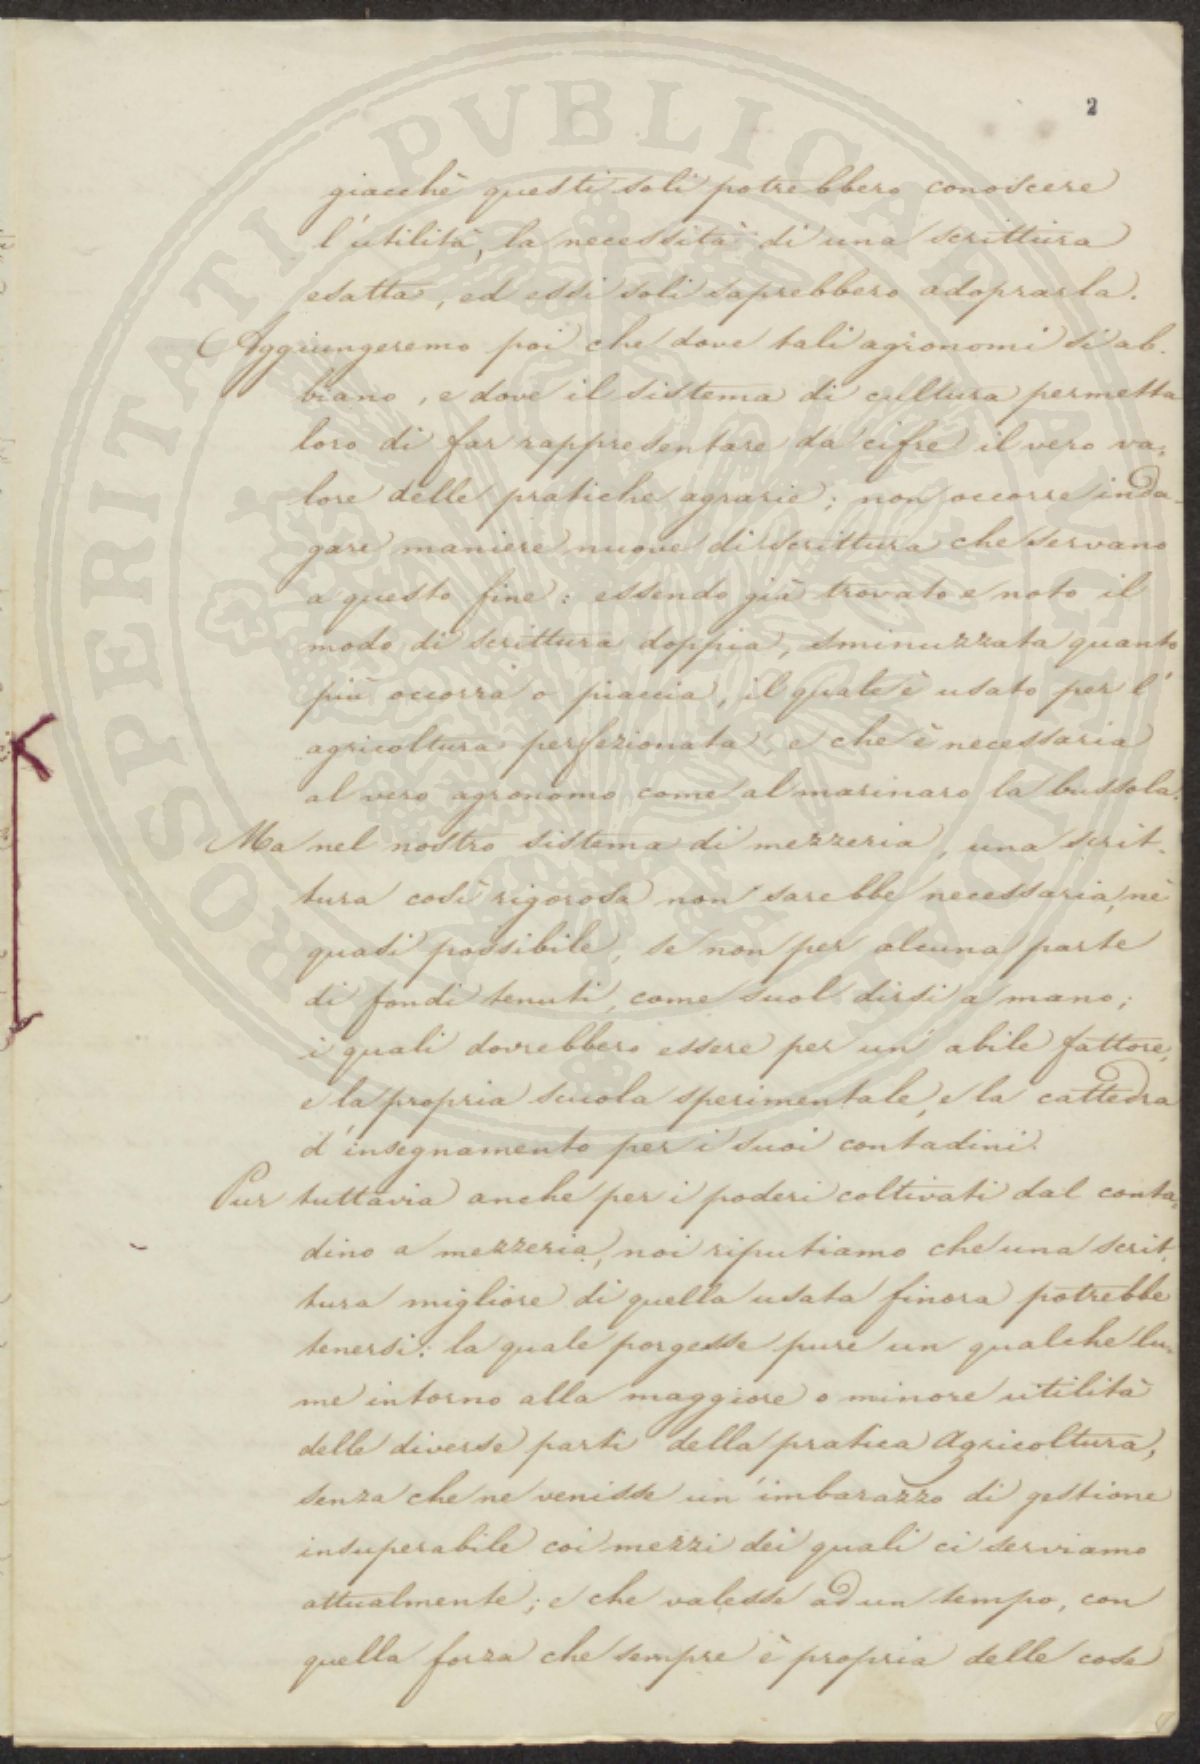 2
giacchè questi soli potrebbero conoscere
l'utilità, la necessità di una scrittura
esatta, ed essi soli saprebbero adoprarla.
Aggiungeremo poi che dove tali agronomi si ab-
biano, e dove il sistema di cultura permetta
loro di far rappresentare da cifre il vero va-
lore delle pratiche agrarie; non occorre inda-
gare maniere nuove di scrittura che servano
a questo fine: essendo già trovato e noto il
modo di scrittura doppia, sminuzzata quanto
più occorra o piaccia, il quale è usato per l'
agricoltura perfezionata e che è necessaria
al vero agronomo come al marinaro la bussola.
Ma nel nostro sistema di mezzeria, una scrit-
tura così rigorosa non sarebbe necessaria, nè
quasi possibile, se non per alcuna parte
di fondi tenuti, come suol dirsi a mano;
i quali dovrebbero essere per un' abile fattore,
e la propria scuola sperimentale, e la cattedra
d'insegnamento per i suoi contadini.
Pur tuttavia anche per i poderi coltivati dal conta-
dino a mezzeria, noi riputiamo che una scrit-
tura migliore di quella usata finora potrebbe
tenersi: la quale porgesse pure un qualche lu-
me intorno alla maggiore o minore utilità
delle diverse parti della pratica Agricoltura,
senza che ne venisse un'imbarazzo di gestione
insuperabile coi mezzi dei quali ci serviamo
attualmente; e che valesse ad un tempo, con
quella forza che sempre è propria delle cose
PROSPERITATI PVBLICAE AVGENDAE